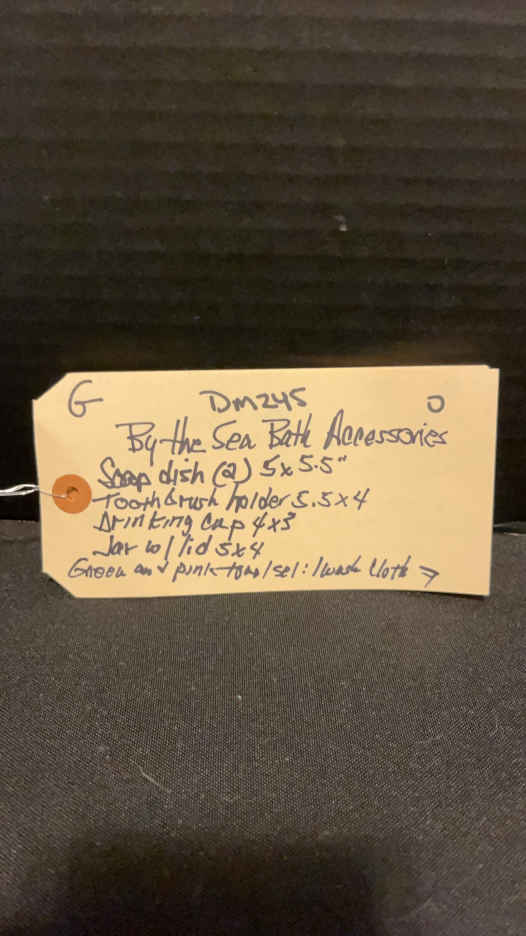 G DM245 O
By the Sea Bath Accessories
Soap dish (2) 5x5.5"
Toothbrush holder 5.5x4
Drinking cup 4x3
Jar w/lid 5x4
Green and pink towel set: 1 wash cloth →